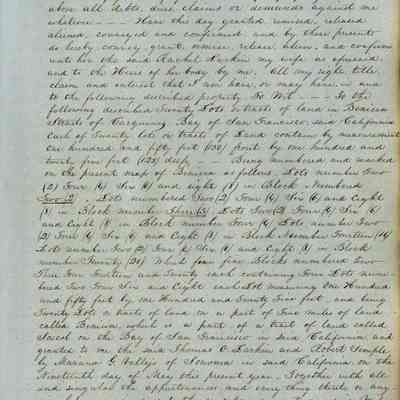 above all debts, dues, claims or demands against me
whatsoever - - - Have this day granted, remised, released
aliened, conveyed and confirmed, and by these presents
do hereby convey, grant, remise, release, alien, and confirm
unto her the said Rachel Larkin my wife as aforesaid,
and to the Heirs of her body by me. All my right, title,
claim and interest that I now have, or may have in and
to the following described property To Wit - - - To the
following described Twenty Lots or tracts of land in Benicia
Straits of Carquinez Bay of San Francisco, said California
Each of Twenty lots or tracts of Land contain by measurement
one hundred and fifty feet (150) front by one hundred and
twenty five feet (125) deep - - Being numbered and marked
on the present map of Benicia as follows. Lots number Two
(2) Four (4) Six (6) and eight (8) in Block Numbered
Two (2). Lots numbered Two (2) Four (4) Six (6) and Eight
(8) in Block number Three (3). Lots Two (2) Four (4) Six (6)
and Eight (8) in Block number Four (4) Lots number Two
(2) Four (4) Six (6) and Eight (8) in Block Number Fourteen (14)
Lots number Two (2) Four (4) Six (6) and Eight (8) in Block
number Twenty (20) What four five Blocks numbered Two
Three Four Fourteen and Twenty each containing Four Lots num-
bered Two Four Six and Eight each Lot measuring One Hundred
and fifty feet by one Hundred and Twenty Five feet, and being
Twenty Lots or tracts of land in a part of Five miles of land
called Benicia, which is a part of a tract of land called
Soscol on the Bay of San Francisco in said California and
granted to me the said Thomas O. Larkin and Robert Semple
by Mariano G. Vallejo of Sonoma in said California on the
Nineteenth day of May this present year. Together with all
and singular the appurtenances and every thing thereto in any-